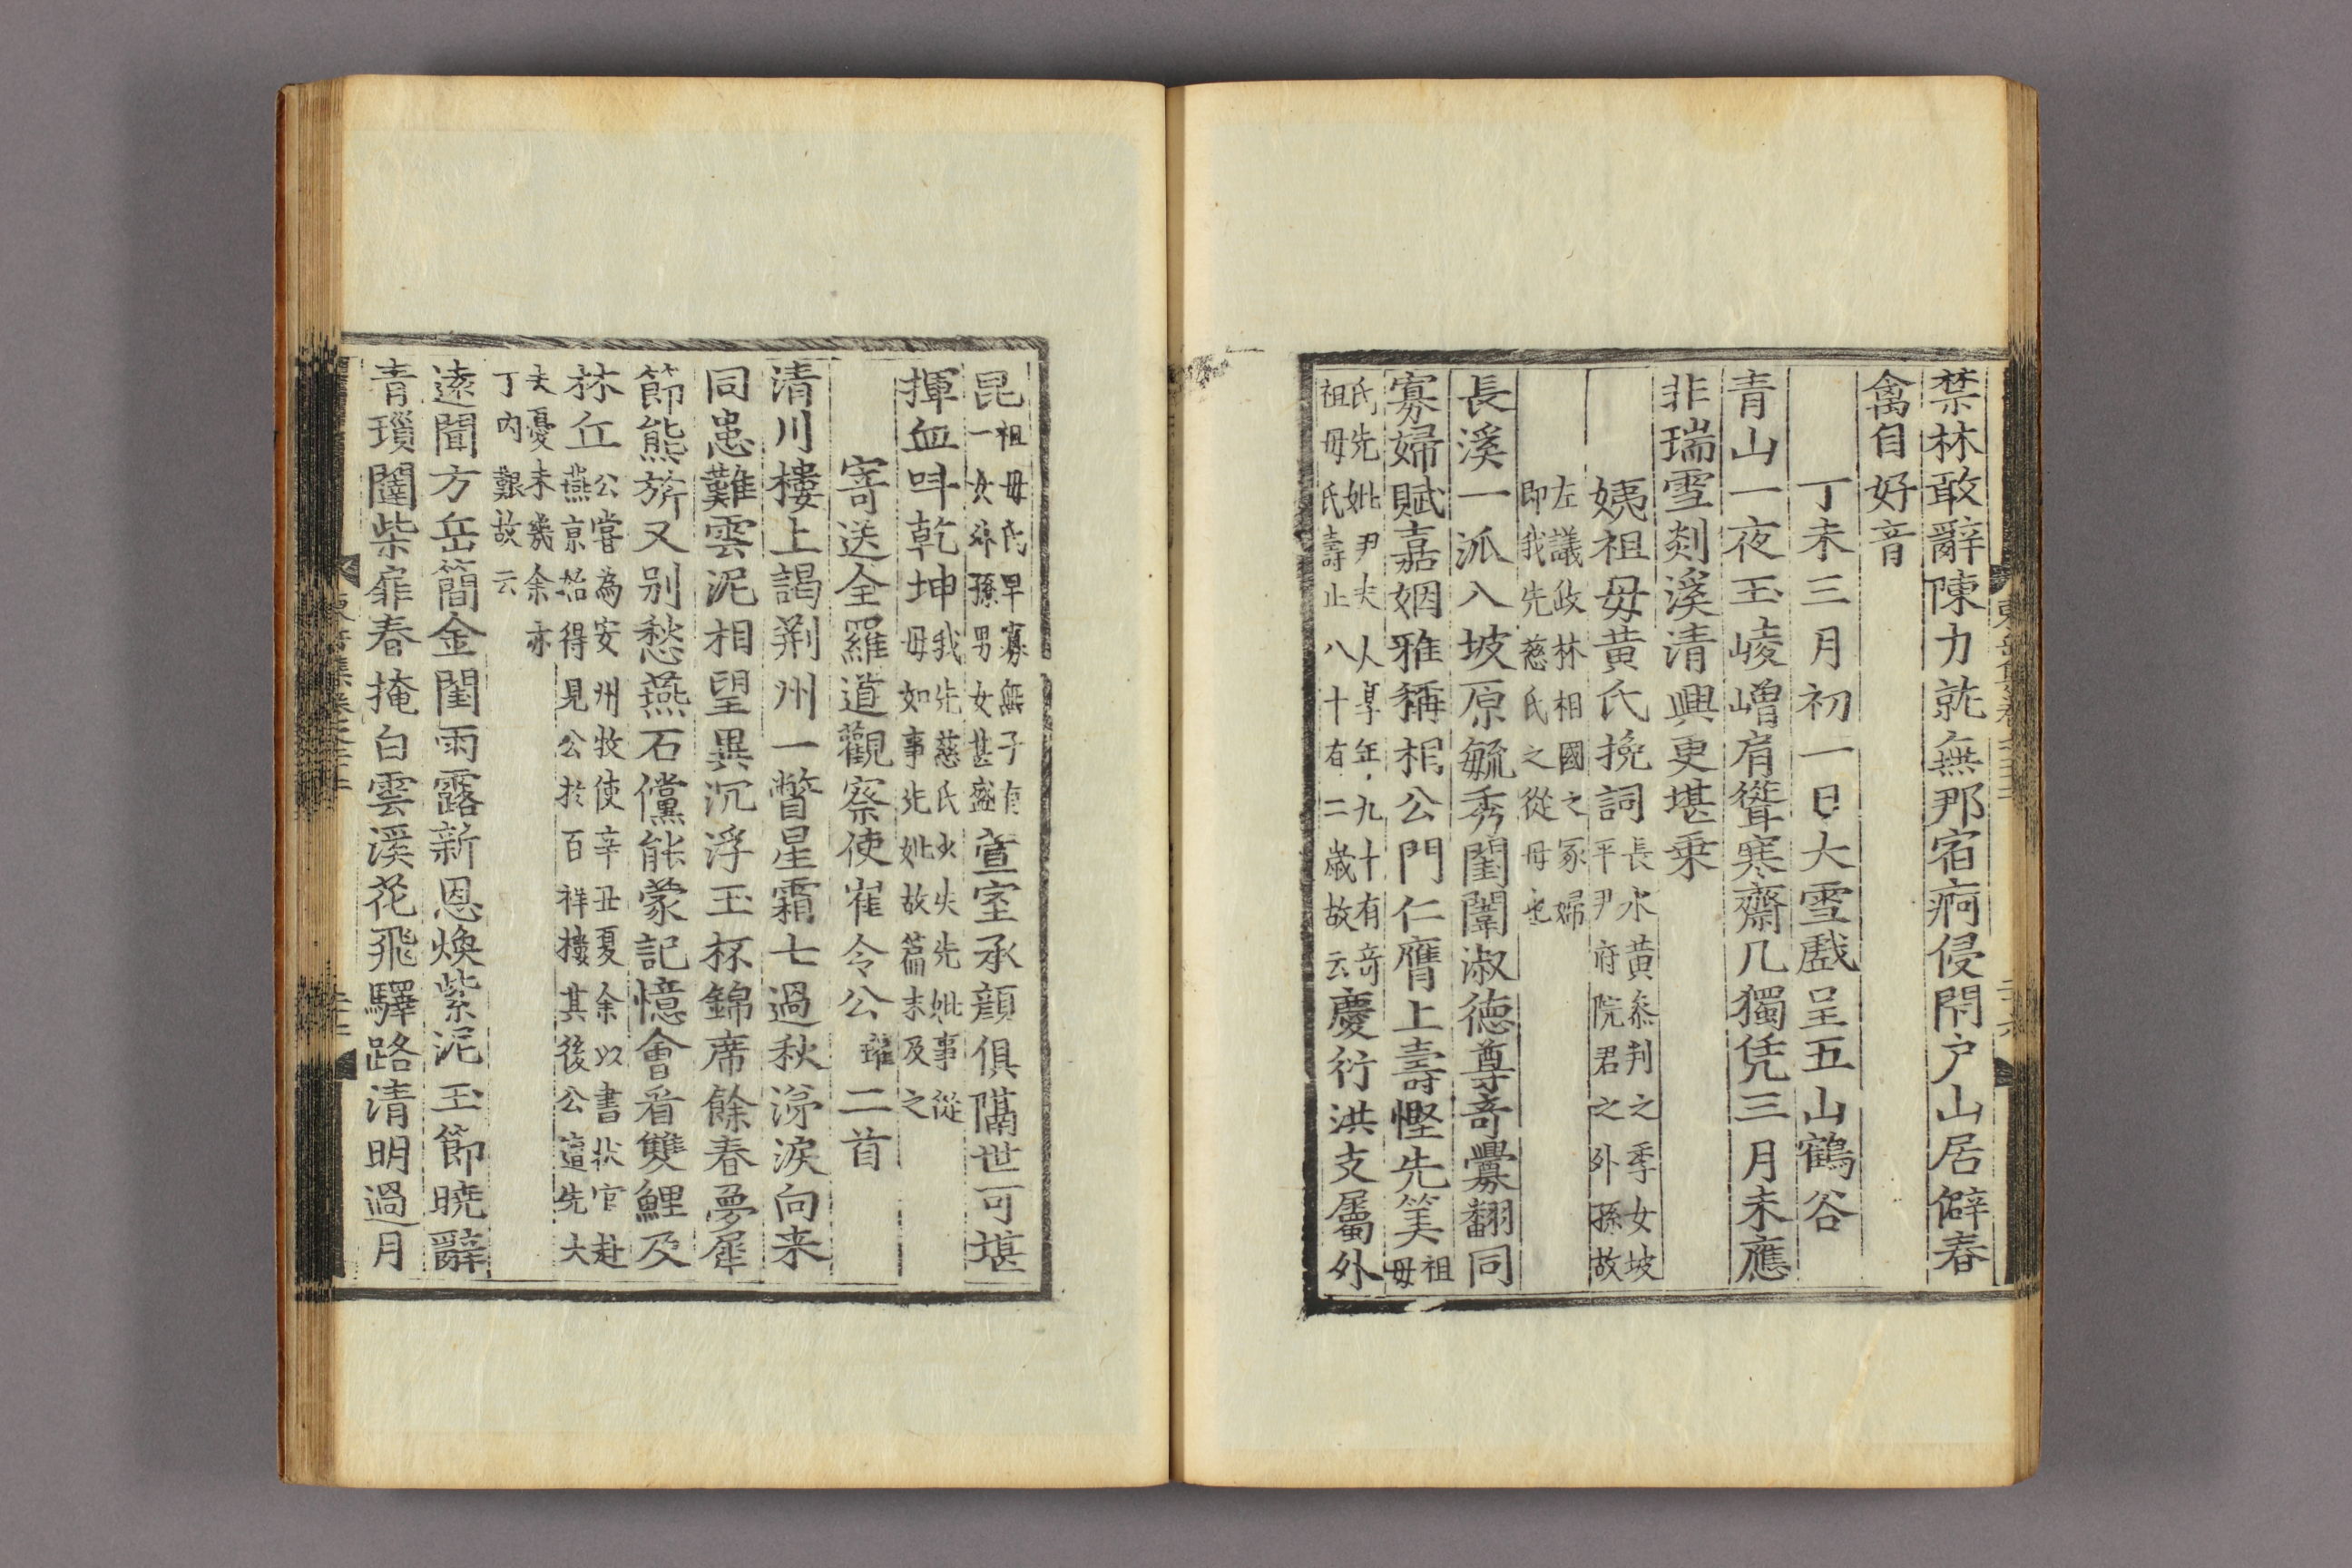 禁林敢辭陳力就無那宿痾侵閉户山居僻春
禽自好音
丁未三月初一日大雪戲呈五山鶴谷
青山一夜玉崚嶒肩聳寒齋几獨凭三月未應
非瑞雪剡溪清興更堪乗
姨祖母黄氏挽詞
長水黄叅判之季女坡
平尹府院君之外孫故
左議政林相國之冢婦
即我先慈氏之從母也
長溪一派八坡原毓秀閨闈淑德尊奇釁翻同
寡婦賦嘉姻雅稱相公門仁膺上壽慳先筭
祖
母
氏先妣尹夫人享年九十有奇
祖母氏壽止八十有二歲故云
慶衍洪支屬外
昆
祖母氏早寡無子有
一女外孫男女甚盛
萱室承顔俱隔世可堪
揮血呌乾坤
我先慈氏少失先妣事從
母如事先妣故篇末及之
寄送全羅道觀察使崔令公
瓘
二首
清川樓上謁荆州一瞥星霜七過秋涕淚向来
同患難雲泥相望異沉浮玉杯錦席餘春夢犀
節熊旂又别愁燕石儻能蒙記憶會看雙鯉及
林丘
公嘗為安州牧使辛丑夏余以書狀官赴
燕京始得見公於百祥樓其後公遭先大
夫憂未幾余亦
丁内艱故云
遠聞方岳簡金閨雨露新恩煥紫泥玉節曉辭
青瑣闥柴扉春掩白雲溪花飛驛路清明過月